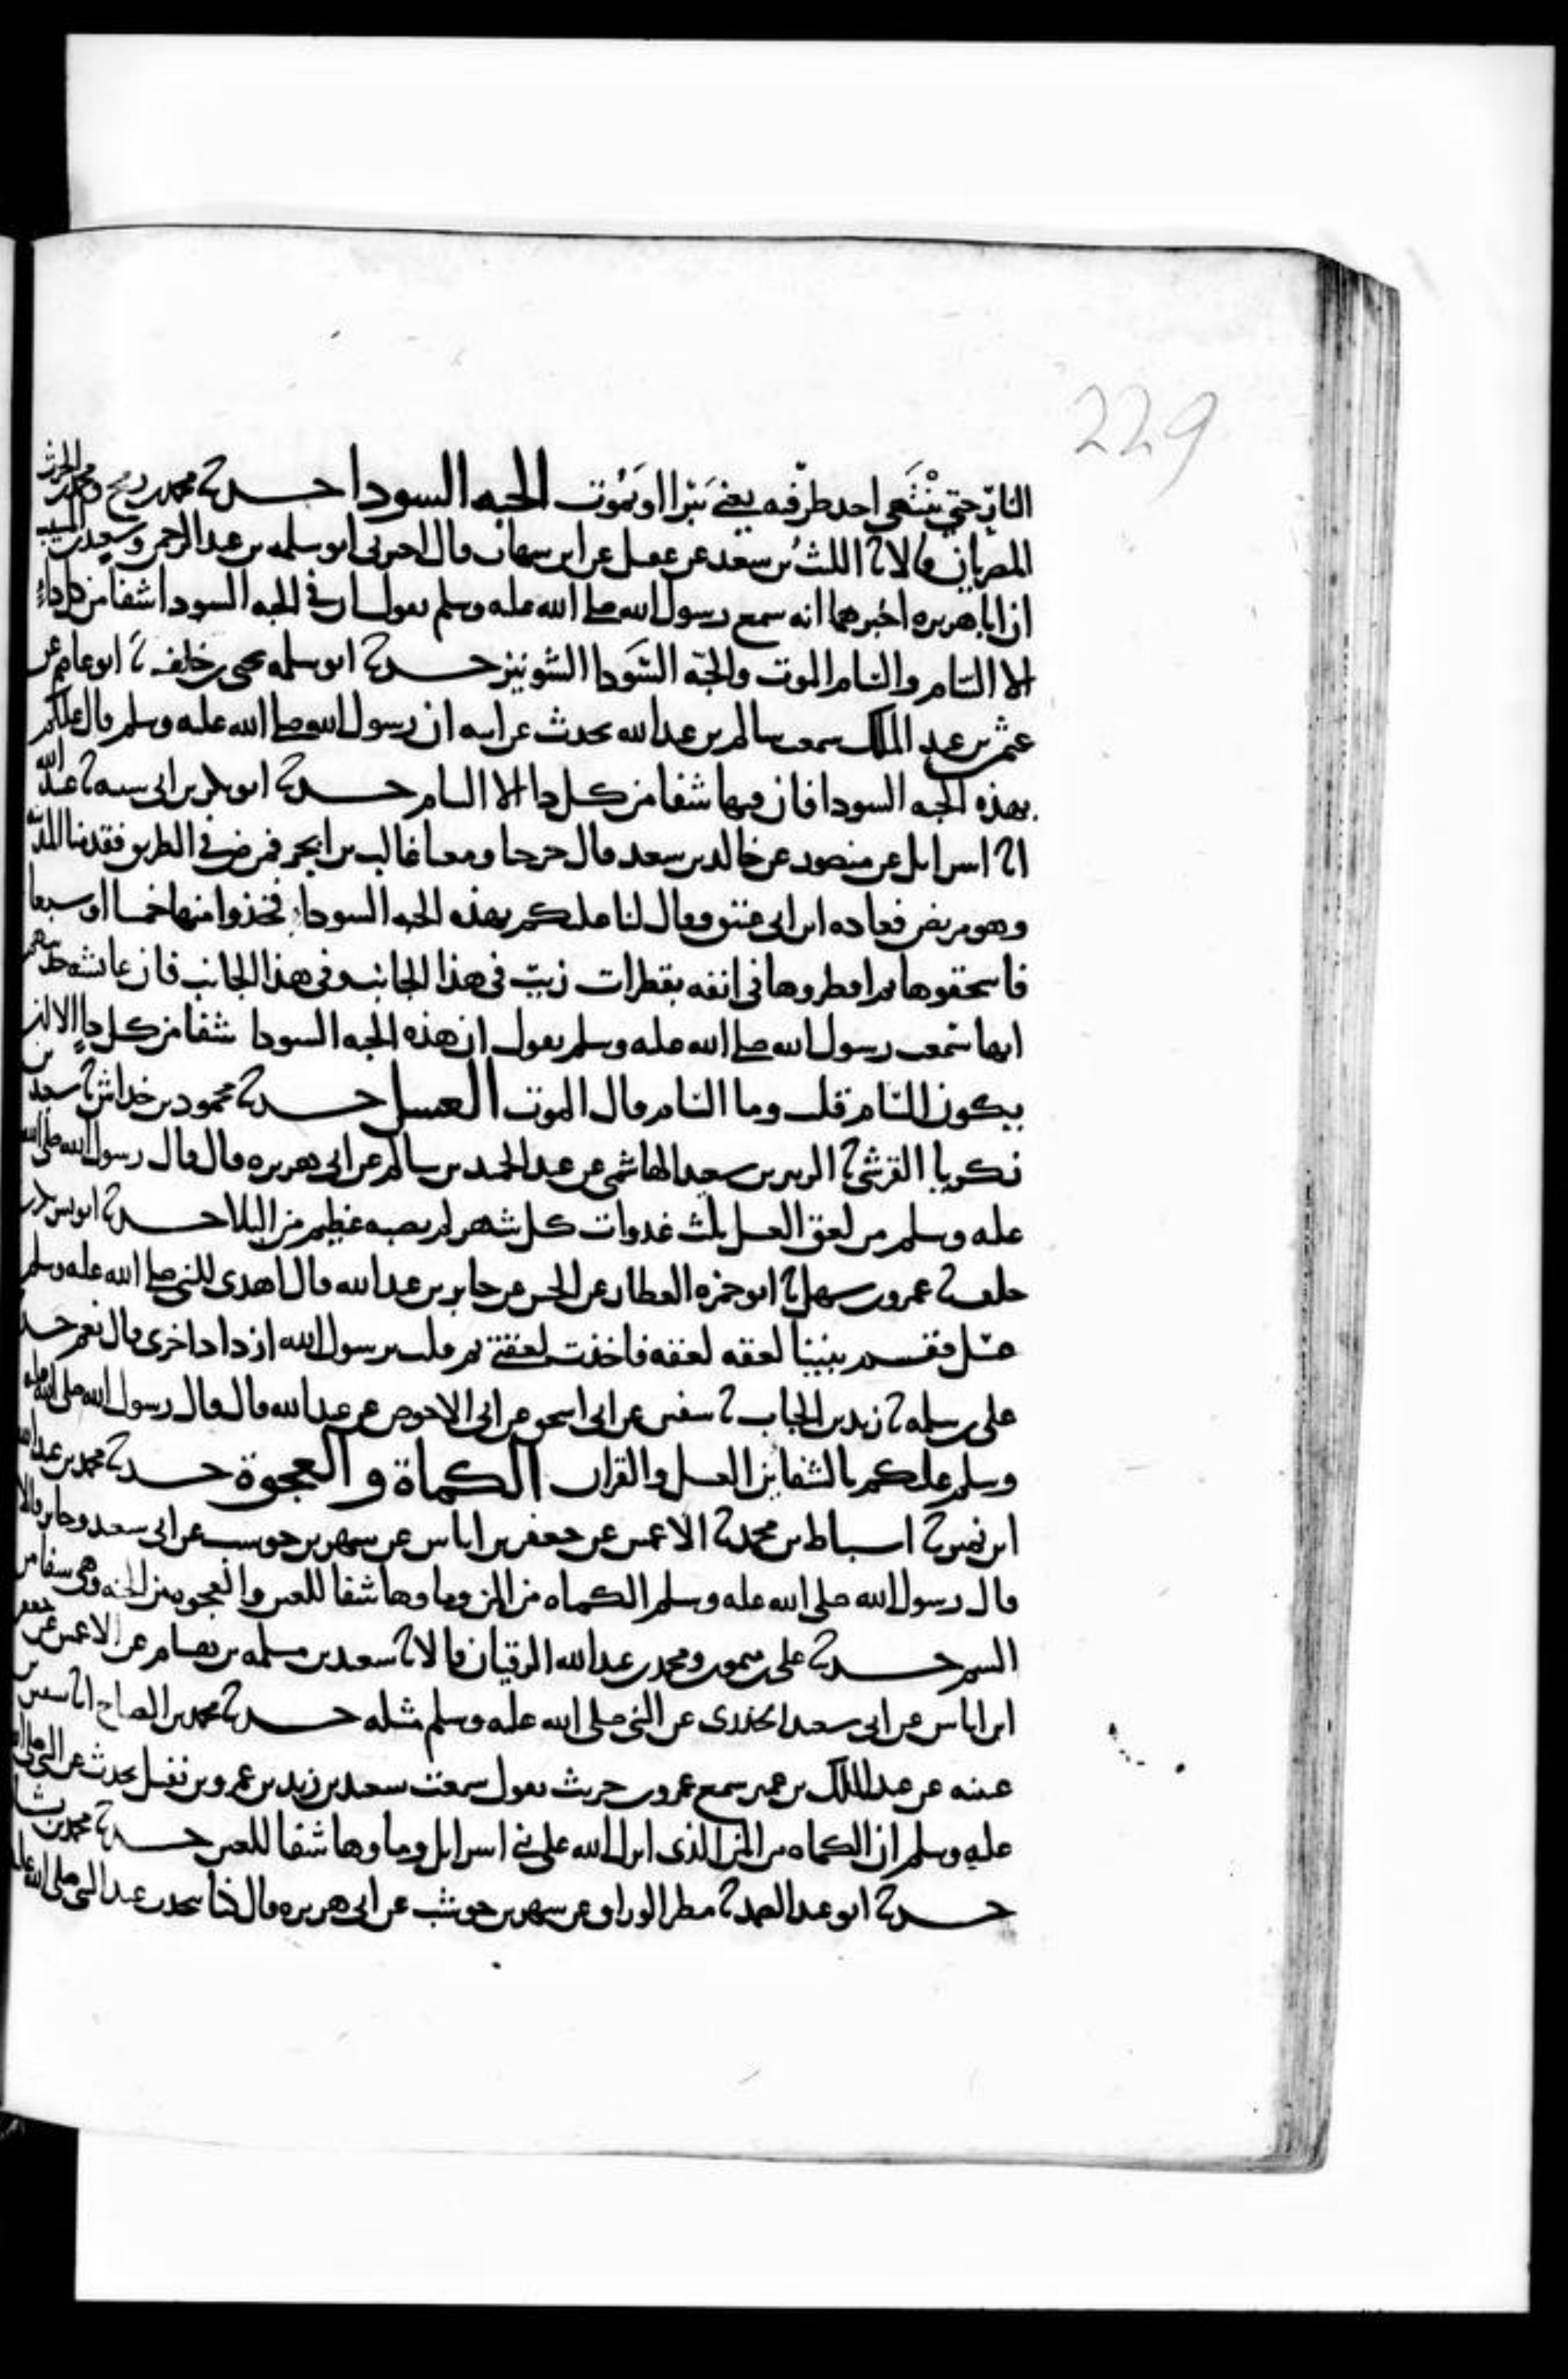 229
النار حتي ينتهي احد طرفيه يعني يبرا او يموت الحبه السودا حدثنا محمد بن رمح ومحمد بن الحرث
المصريان قالا ثنا الليث بن سعد عن عقيل عن ابن شهاب قال اخبرني ابو سلمه بن عبد الرحمن وسعيد بن المسيب
ان ابا هريره اخبرهما انه سمع رسول الله صلى الله عليه وسلم يقول ان في الحبه السودا شفا من كل داء
الا السام والسام الموت والحبه السودا الشونيز حدثنا ابو سلمه يحيى بن خلف ثنا ابو عاصم عن
عثمن بن عبد الملك سمعت سالم بن عبد الله يحدث عن ابيه ان رسول الله صلى الله عليه وسلم قال عليكم
بهذه الحبه السودا فان فيها شفا من كل دا الا السام حدثنا ابو بكر بن ابي شيبه ثنا عبيد الله
انا اسرايل عن منصور عن خالد بن سعد قال خرجنا ومعنا غالب بن ابجر فمرض في الطريق فقدمنا المدينه
وهو مريض فعاده ابن ابي عتيق وقال لنا عليكم بهذه الحبه السودا فخذوا منها خمسا او سبعا
فاسحقوها ثم اقطروها في انفه بقطرات زيت في هذا الجانب وفي هذا الجانب فان عايشه حدثتهم
انها سمعت رسول الله صلى الله عليه وسلم يقول ان هذه الحبه السودا شفا من كل دا الا ان
يكون السام قلت وما السام قال الموت العسل حدثنا محمود بن خداش ثنا سعيد بن
زكريا القرشي ثنا الزبير بن سعيد الهاشمي عن عبد الحميد بن سالم عن ابي هريره قال قال رسول الله صلى الله
عليه وسلم من لعق العسل ثلث غدوات كل شهر لم يصبه عظيم من البلا حدثنا ابو بشر بكر بن
خلف ثنا عمر بن سهل ثنا ابو حمزه العطار عن الحسن عن جابر بن عبد الله قال اهدى للنبي صلى الله عليه وسلم
عسل فقسم بيننا لعقه لعقه فاخذت لعقتي ثم قلت يرسول الله ازداد اخرى قال نعم حدثنا
علي بن سلمه ثنا زيد بن الحباب ثنا سفين عن ابي اسحق عن ابي الاحوص عن عبد الله قال قال رسول الله صلى الله عليه
وسلم عليكم بالشفاين العسل والقران الكماة و العجوة حدثنا محمد بن عبد الله
ابن نمير ثنا اسباط بن محمد ثنا الاعمش عن جعفر بن اياس عن شهر بن حوشب عن ابي سعيد وجابر قالا
قال رسول الله صلى الله عليه وسلم الكماه من المن وماوها شفا للعين والعجوه من الجنه وهي شفا من
السم حدثنا علي بن ميمون ومحمد بن عبد الله الرقيان قالا ثنا سعيد بن مسلمه بن هشام عن الاعمش عن جعفر بن
ابن اياس عن ابي سعيد الخدري عن النبي صلى الله عليه وسلم مثله حدثنا محمد بن الصباح انا سفين بن
عيينه عن عبد الملك بن عمير سمع عمرو بن حريث يقول سمعت سعيد بن زيد بن عمرو بن نفيل يحدث عن النبي صلى الله
عليه وسلم ان الكماه من المن الذي انزل الله على بني اسرايل وماوها شفا للعين حدثنا محمد بن بشار
حدثنا ابو عبد الصمد ثنا مطر الوراق عن شهر بن حوشب عن ابي هريره قال كنا نتحدث عند النبي صلى الله عليه